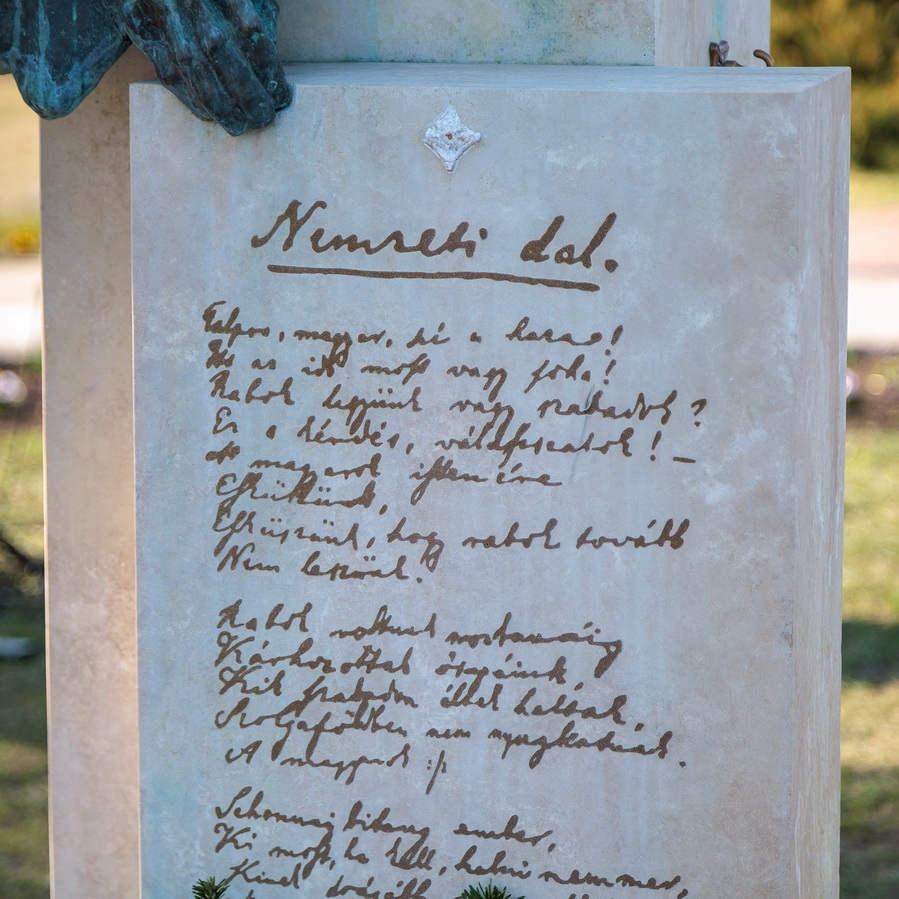 Nemzeti dal.
Talpra, magyar, hí a haza!
Itt az idő most vagy soha!
Rabok legyünk vagy szabadok?
Ez a kérdés, válasszatok! –
A magyarok istenére
Esküszünk,
Esküszünk, hogy rabok tovább
Nem leszünk!
Rabok voltunk mostanáig
Kárhozottak ősapáink
Kik szabadon éltek haltak,
Szolgaföldben nem nyughatnak.
A magyarok :/:
Sehonnai bitang ember,
Ki most, ha kell, halni nem mer,
Kinek drágább